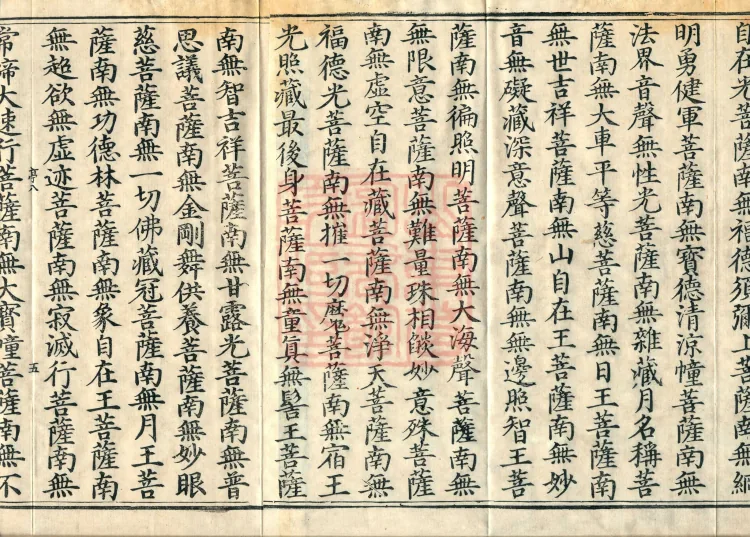 自在光菩薩南無福德須彌上菩薩南無網
明勇健軍菩薩南無寶德清涼幢菩薩南無
法界音聲無性光菩薩南無雜藏月名稱菩
薩南無大車平等慈菩薩南無日王菩薩南
無世吉祥菩薩南無山自在王菩薩南無妙
音無礙藏深意聲菩薩南無無邊照智王菩
薩南無徧照明菩薩南無大海聲菩薩南無
無限意菩薩南無難量珠相燄妙意殊菩薩
南無虛空自在藏菩薩南無淨天菩薩南無
福德光菩薩南無摧一切魔菩薩南無宿王
光照藏最後身菩薩南無童真無髻王菩薩
南無智吉祥菩薩南無甘露光菩薩南無普
思議菩薩南無金剛舞供養菩薩南無妙眼
慈菩薩南無一切佛藏冠菩薩南無月王菩
薩南無功德林菩薩南無象自在王菩薩南
無超欲無虛迹菩薩南無寂滅行菩薩南無
五
常啼大速行菩薩南無大寶幢菩薩南無不